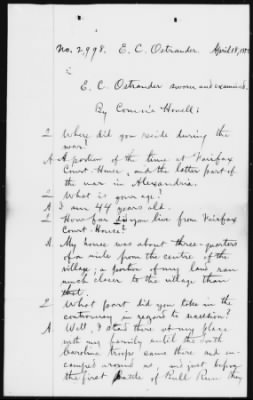 No. 2998. E. C. Ostrander. April 18, 18
E. C. Ostrander sworn and examined.
By Com'r Howell:
Q Where did you reside during the
war?
A A portion of the time at Fairfax
Court House, and the latter part of
the war in Alexandria.
Q What is your age?
A I am 44 years old.
Q How far did you live from Fairfax
Court House?
A. My house was about three-quarters
of a mile from the centre of the
village; a portion of my land ran
much closer to the village than
that.
Q What part did you take in the
controversy in regard to secession?
A. Well, I staid there at my place
with my family until the South
Carolina troops came there and en-
camped around us, and just before
the first battle of Bull Run they